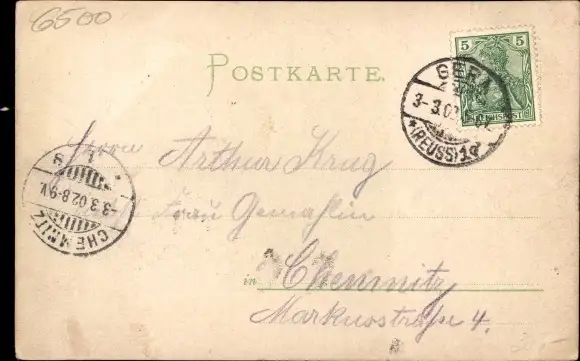 6500
POSTKARTE.
5 5
REICHSPOST
GERA
3-3.02
*(REUSS)1d
Herrn Arthur Krug
Frau Gemahlin
in Chemnitz
Markusstraße 4.
CHEMNITZ
-3.3.02.8-9V.
* 1. 8